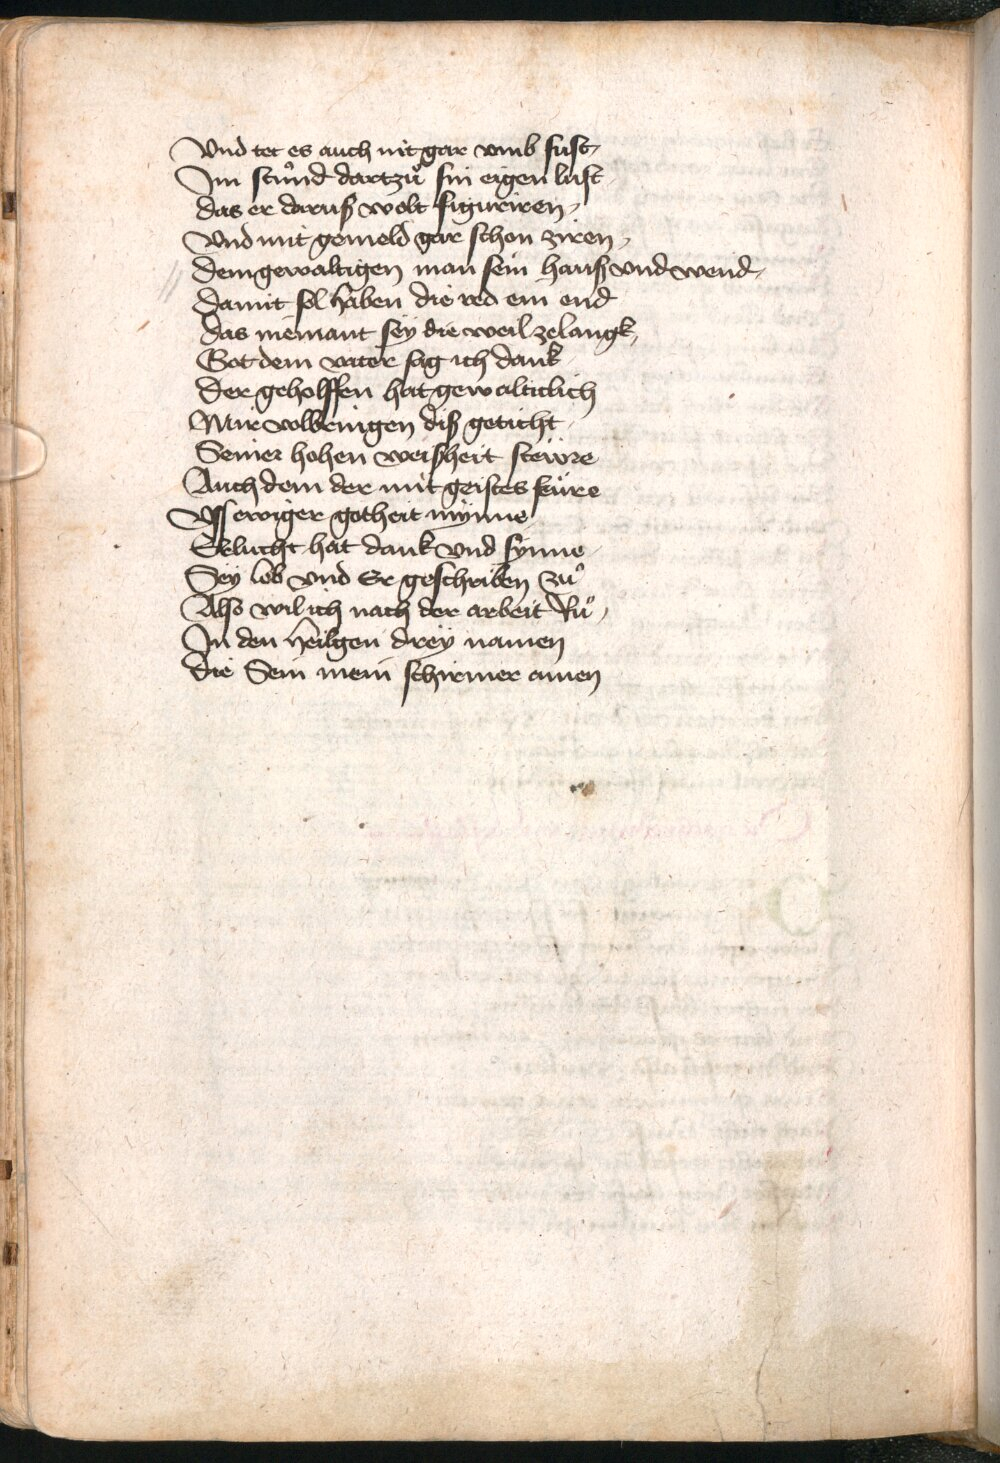 Vnd tet es auch nit gar vmb sust
Im stůnd dartzů sin eigen lust
das er daruß wolt figuriren
Vnd mit gemeld gar schon ziren
dem gewaltigen man sein hauß vnd wend
Damit sol haben die red ein end
das niemant sey die weil zelangk
Got dem vater sag ich dank
Der geholffen hat gewalticlich
Mir volbringen diß geticht
Seiner hohen weißheit stewre
Auch dem der mit geistes feure
Vss ewiger gotheit mynne
Erlucht hat dank vnd synne
Sey lob vnd Er geschriben zů
Also wil ich nach der arbeit Rů
In den heilgen drey namen
die Sein mein schirmer amen